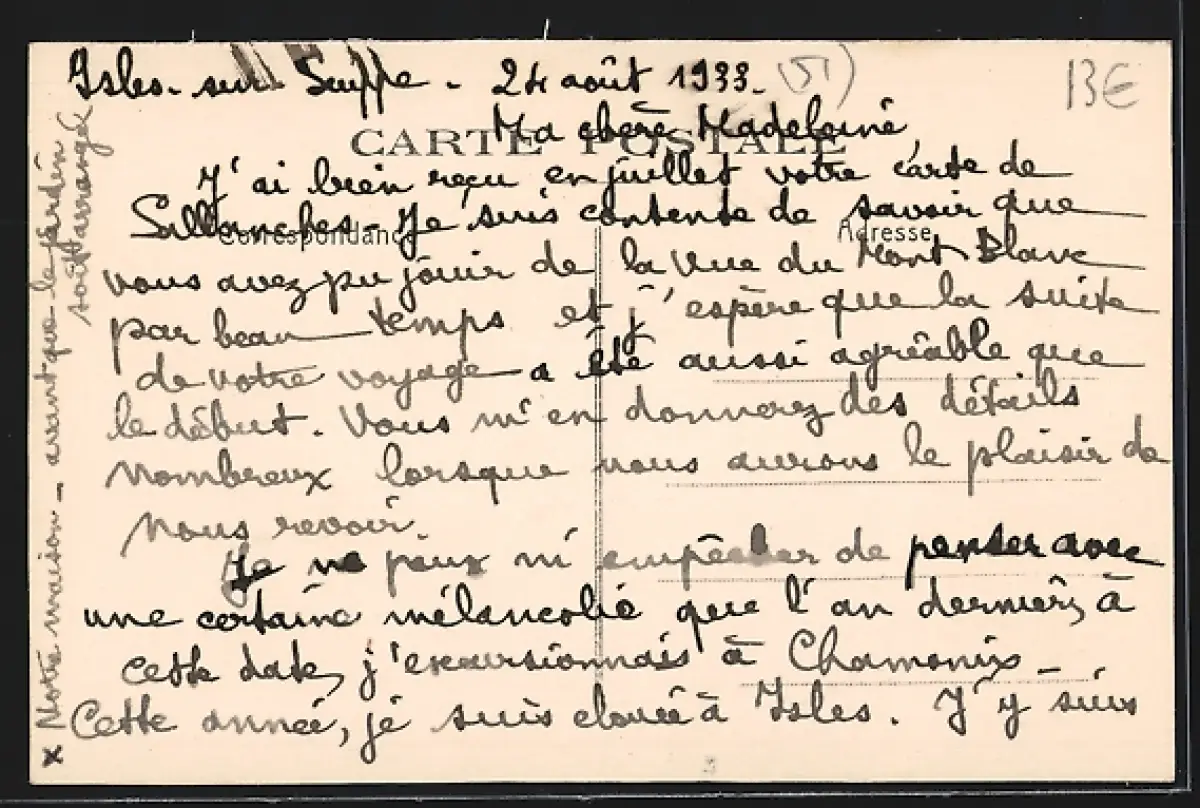 Isles-sur-Suippe - 24 août 1933.
(51)
13€
Ma chère Madeleine,
CARTE POSTALE
J'ai bien reçu en juillet votre carte de
Sallanches. Je suis contente de savoir que
Correspondance
Adresse
vous avez pu jouir de la vue du Mont Blanc
par beau temps et j'espère que la suite
de votre voyage a été aussi agréable que
le début. Vous m'en donnerez des détails
nombreux lorsque nous aurons le plaisir de
nous revoir.
Je ne peux m'empêcher de penser avec
une certaine mélancolie que l'an dernier, à
cette date, j'excursionnais à Chamonix -
Cette année, je suis clouée à Isles. J'y suis
x Notre maison - avant que le jardin
soit arrangé